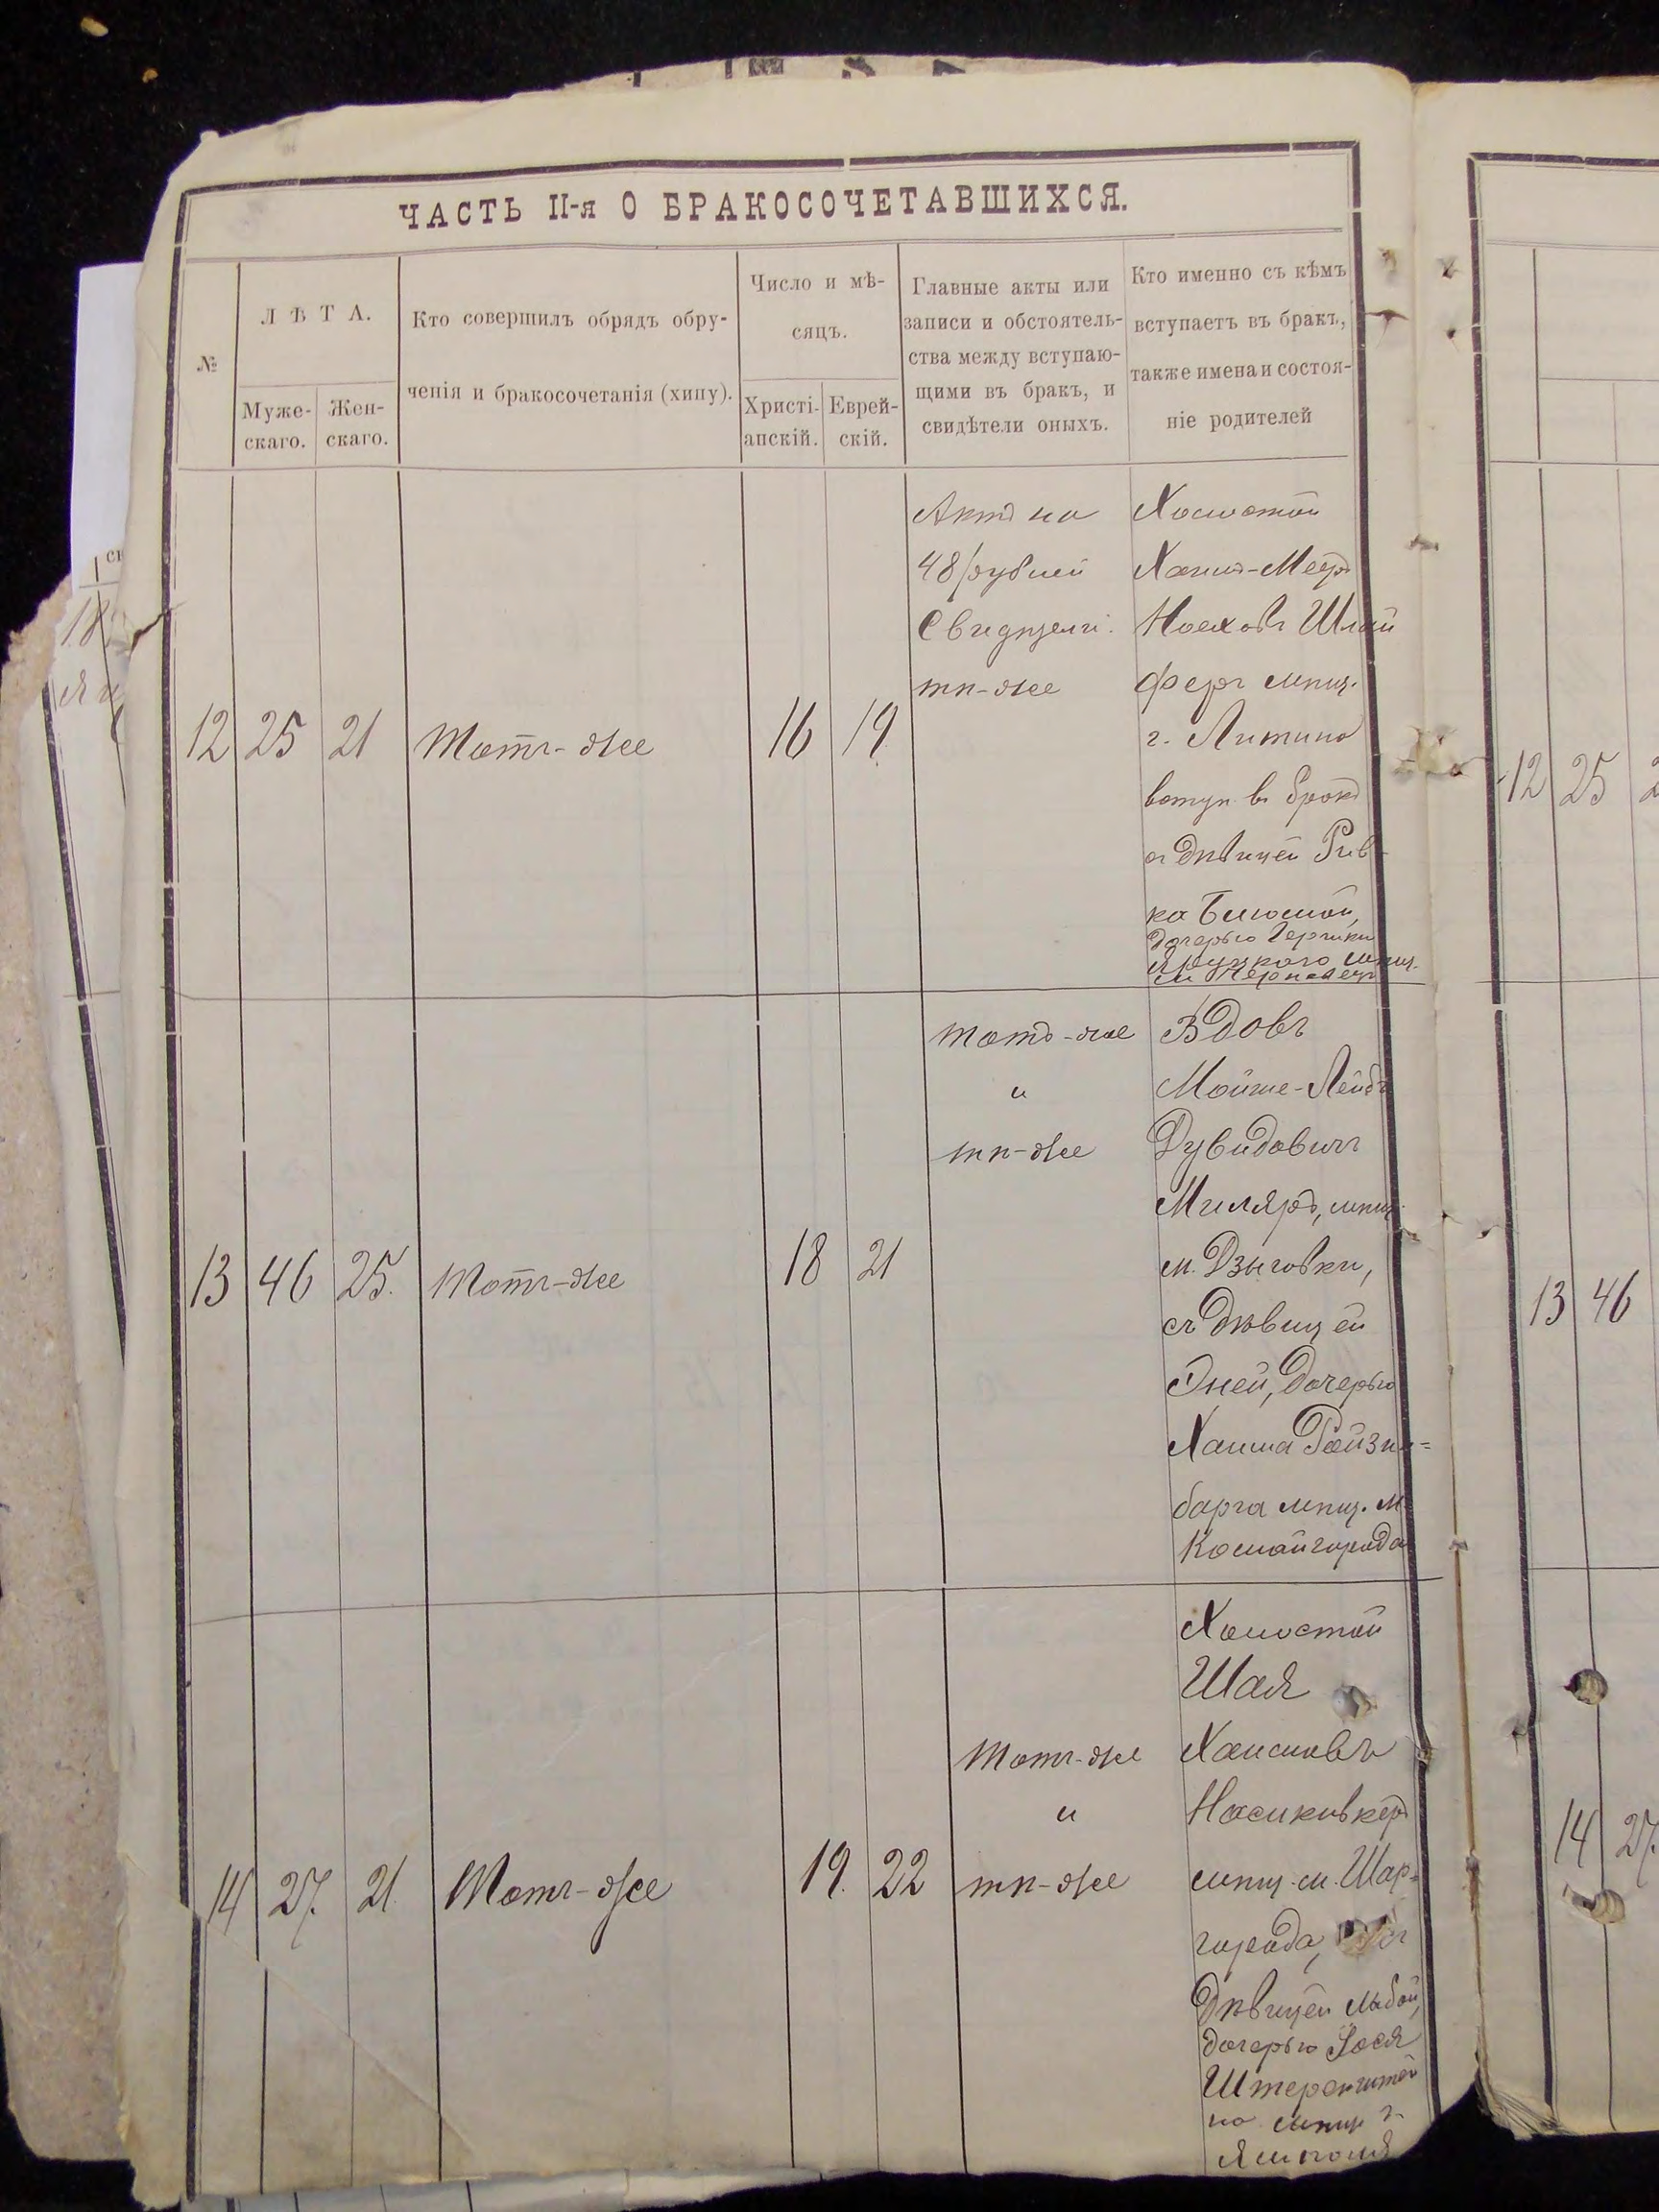 ЧАСТЬ II-я О БРАКОСОЧЕТАВШИХСЯ.
№
ЛѢТА.
Муже-
скаго.
Жен-
скаго.
Кто совершилъ обрядъ обру-
ченія и бракосочетанія (хипу).
Число и мѣ-
сяцъ.
Христі-
анскій.
Еврей-
скій.
Главные акты или
записи и обстоятель-
ства между вступаю-
щими въ бракъ, и
свидѣтели оныхъ.
Кто именно съ кѣмъ
вступаетъ въ бракъ,
также имена и состоя-
ніе родителей
12 25 21 Тотъ-же 16 19
Актъ на
48 рублей
Свидѣтели
тѣ-же
Холостой
Хаимъ-Мееръ
Ноеховъ Шлей
феръ мѣщ.
г. Литина
вступ. въ бракъ
съ дѣвицей Рив-
ка Бейлой,
дочерью
мѣщ.
13 46 25. Тотъ-же 18 21
Тотъ-же
и
тѣ-же
Вдовъ
Мойше-Лейбъ
Дувидовичъ
Миляръ, мѣщ.
м. Дзыговки,
съ дѣвицей
Эней, дочерью
Хаима Ройзин-
барга мѣщ. м.
14 27. 21. Тотъ-же 19. 22
Тотъ-же
и
тѣ-же
Холостой
Шая
Хаимовъ
мѣщ. м. Шар-
города, съ
дѣвицей
дочерью
Штеренштей
на мѣщ г.
Ямполя
12 25 2
13 46
14 27.